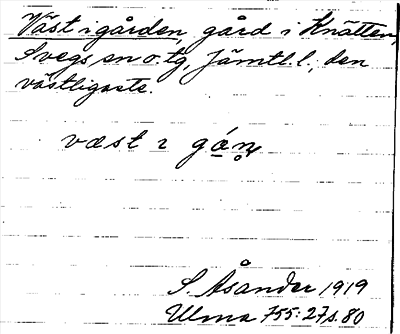 Väst i gården, gård i Knätten,
Svegs sn o. tg, Jämtl. l., den
västligaste.
væst ɩ gá̱n̥
S. Åsander 1919
Ulma 755:27 s. 80